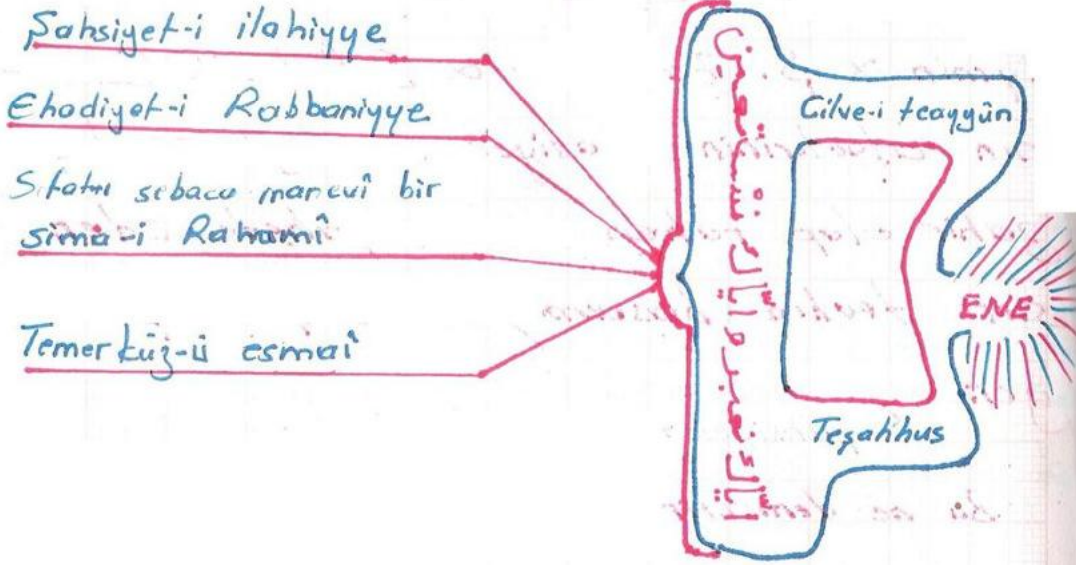 Şahsiyet-i ilahiyye
Ehadiyet-i Rabbaniyye
manevî bir
sima-i Rahmanî
Temerküz-ü esmaî
إيّاك نعبد وإيّاك نستعين
Cilve-i teayyün
ENE
Teşahhus